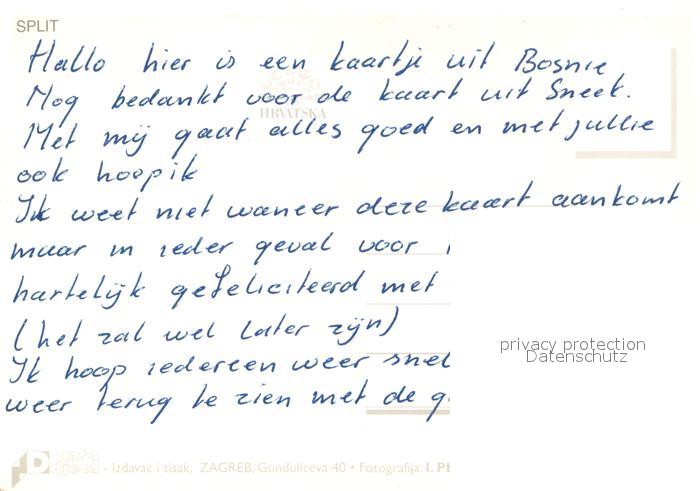 SPLIT
Hallo hier is een kaartje uit Bosnie
Nog bedankt voor de kaart uit Sneek.
HRVATSKA
Met mij gaat alles goed en met jullie
ook hoop ik
Ik weet niet waneer deze kaart aankomt
maar in ieder geval voor
hartelijk gefeliciteerd met
(het zal wel later zijn)
Ik hoop iedereen weer snel
weer terug te zien met de g
privacy protection
Datenschutz
naša djeca - Izdavač i tisak, ZAGREB, Gundulićeva 40 • Fotografija: I.